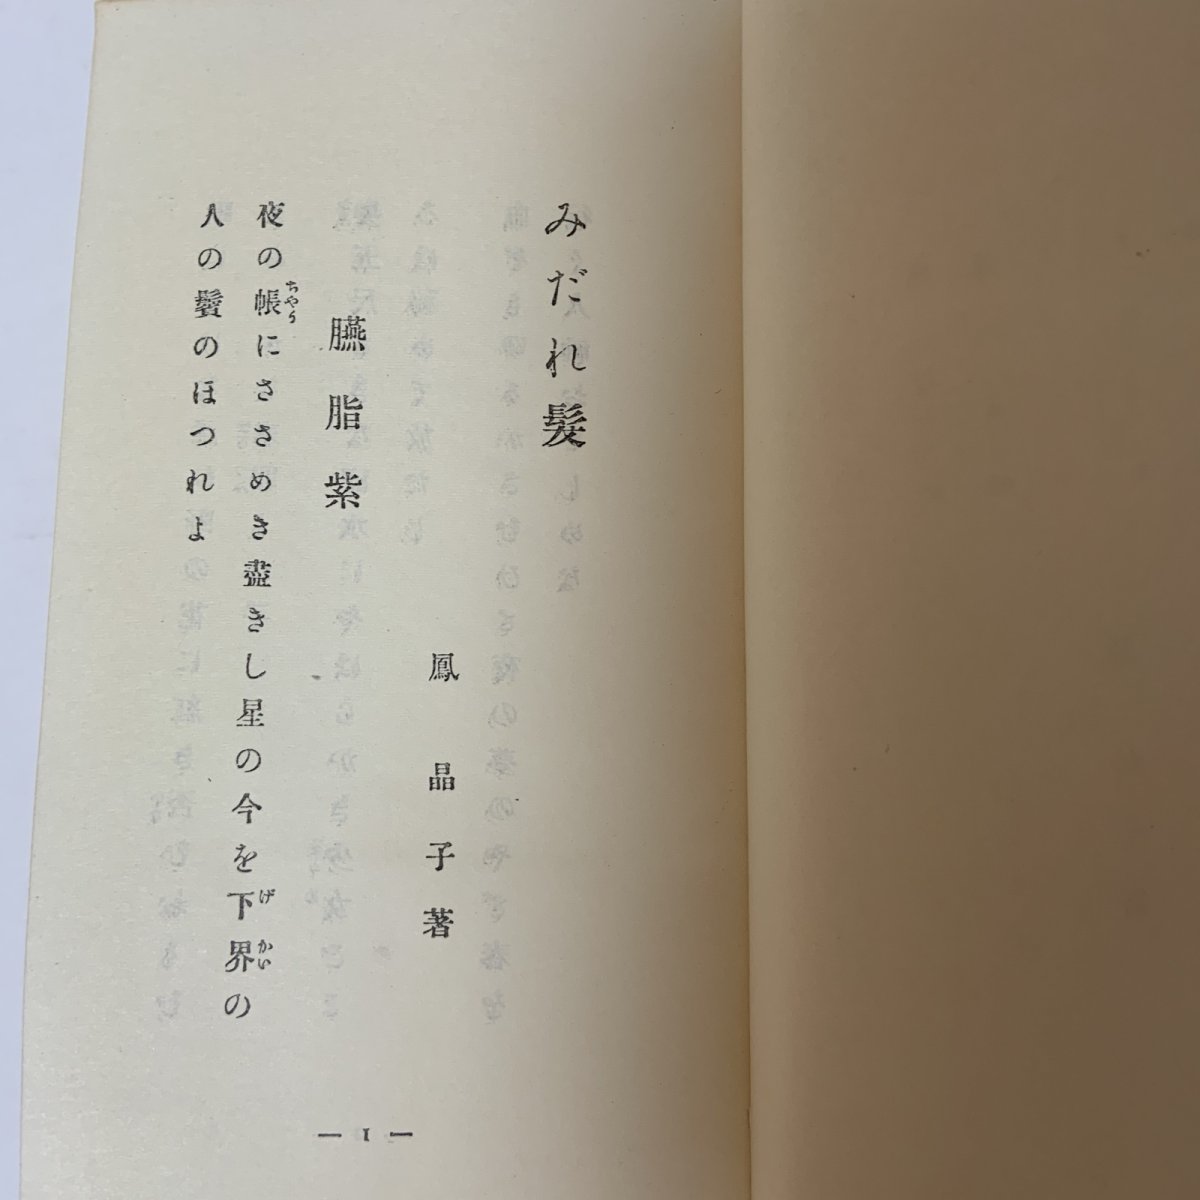 みだれ髪
鳳晶子著
臙脂紫
夜の帳にささめき盡きし星の今を下界の
ちやう
げかい
人の鬢のほつれよ
— 1 —